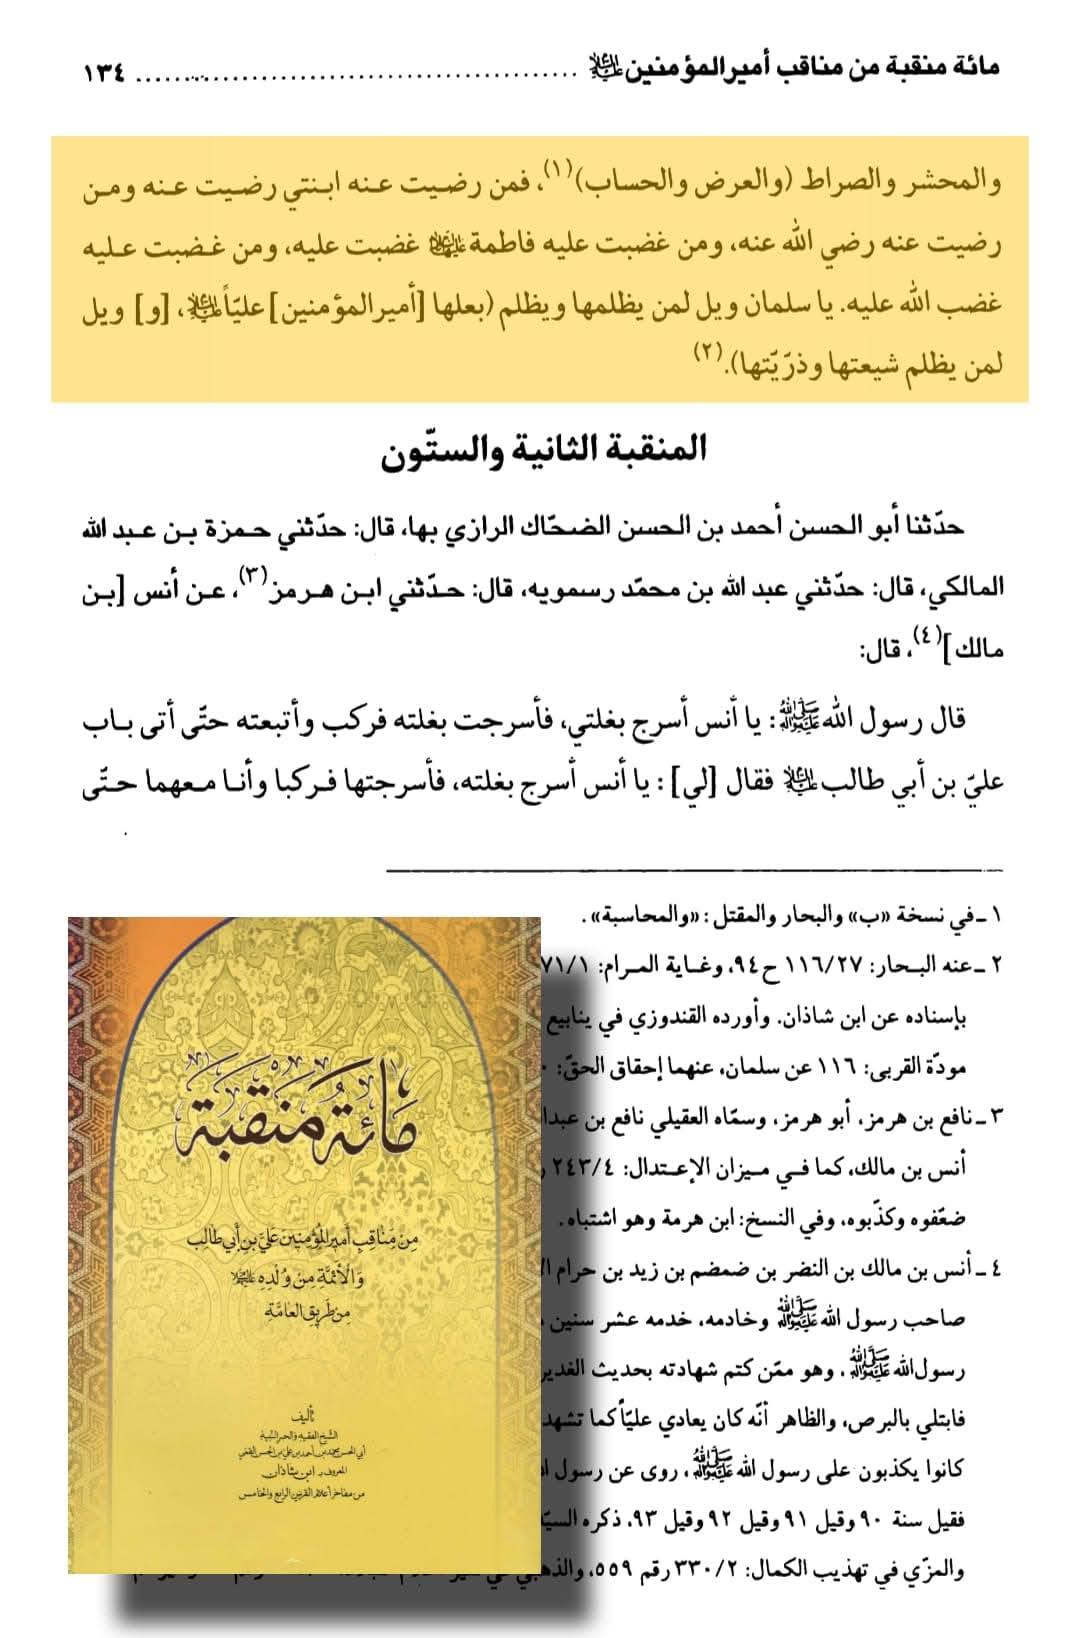 مائة منقبة من مناقب أمير المؤمنين عليه السلام ........................................ ١٣٤
والمحشر والصراط (والعرض والحساب)(١)، فمن رضيت عنه ابنتي رضيت عنه ومن
رضيت عنه رضي الله عنه، ومن غضبت عليه فاطمة عليها السلام غضبت عليه، ومن غضبت عليه
غضب الله عليه. يا سلمان ويل لمن يظلمها ويظلم (بعلها [أمير المؤمنين] عليّاً عليه السلام، [و] ويل
لمن يظلم شيعتها وذرّيّتها).(٢)
المنقبة الثانية والستّون
حدّثنا أبو الحسن أحمد بن الحسن الضحّاك الرازي بها، قال: حدّثني حمزة بن عبد الله
المالكي، قال: حدّثني عبد الله بن محمّد رسمويه، قال: حدّثني ابن هرمز(٣)، عن أنس [بن
مالك](٤)، قال:
قال رسول الله ﷺ: يا أنس أسرج بغلتي، فأسرجت بغلته فركب وأتبعته حتّى أتى باب
عليّ بن أبي طالب عليه السلام فقال [لي]: يا أنس أسرج بغلته، فأسرجتها فركبا وأنا معهما حتّى
١ ـ في نسخة «ب» والبحار والمقتل: «والمحاسبة».
٢ ـ عنه البحار: ١١٦/٢٧ ح ٩٤، وغاية المرام: ٧١/١
بإسناده عن ابن شاذان. وأورده القندوزي في ينابيع
مودّة القربى: ١١٦ عن سلمان، عنهما إحقاق الحقّ:
٣ ـ نافع بن هرمز، أبو هرمز، وسمّاه العقيلي نافع بن
أنس بن مالك، كما في ميزان الإعتدال: ٢٤٣/٤
ضعّفوه وكذّبوه، وفي النسخ: ابن هرمة وهو اشتباه.
٤ ـ أنس بن مالك بن النضر بن ضمضم بن زيد بن حرام
صاحب رسول الله ﷺ وخادمه، خدمه عشر سنين
رسول الله ﷺ، وهو ممّن كتم شهادته بحديث الغدير
فابتلي بالبرص، والظاهر أنّه كان يعادي عليّاً كما تشهد
كانوا يكذبون على رسول الله ﷺ، روى عن رسول
فقيل سنة ٩٠ وقيل ٩١ وقيل ٩٢ وقيل ٩٣، ذكره
والمزّي في تهذيب الكمال: ٣٣٠/٢ رقم ٥٥٩، والذهبي في
مائة منقبة
من مناقب أمير المؤمنين علي بن أبي طالب
والأئمة من ولده عليهم السلام
من طريق العامة
تأليف
الشيخ الفقيه والحبر النبيه
أبي الحسن محمد بن أحمد بن علي بن الحسن القمي
المعروف بـ ابن شاذان
من مفاخر أعلام القرنين الرابع والخامس